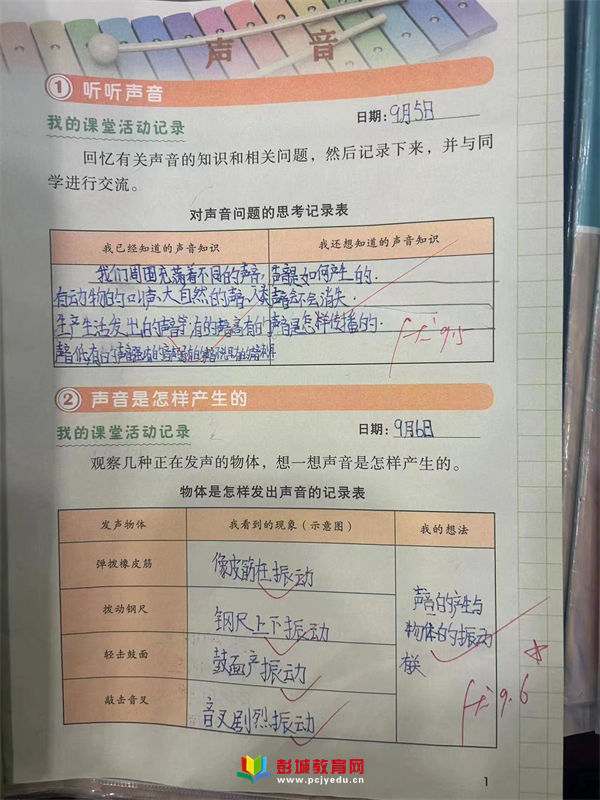 声 音
1 听听声音
我的课堂活动记录
日期：9月5日
回忆有关声音的知识和相关问题，然后记录下来，并与同
学进行交流。
对声音问题的思考记录表
我已经知道的声音知识 我还想知道的声音知识
我们周围充满着不同的声音， 声音是如何产生的.
有动物的叫声、大自然的声音、人类 声音会不会消失.
生产生活发出的声音 有的声音高有的 声音是怎样传播的.
声音低有的声音强有的
9.5
2 声音是怎样产生的
我的课堂活动记录
日期：9月6日
观察几种正在发声的物体，想一想声音是怎样产生的。
物体是怎样发出声音的记录表
发声物体 我看到的现象（示意图） 我的想法
弹拨橡皮筋 像皮筋在振动
拨动钢尺 钢尺上下振动
轻击鼓面 鼓面产振动
敲击音叉 音叉剧烈振动
声音的产生与
物体的振动
有关
9.6
彭城教育网
www.pcjyedu.cn
1